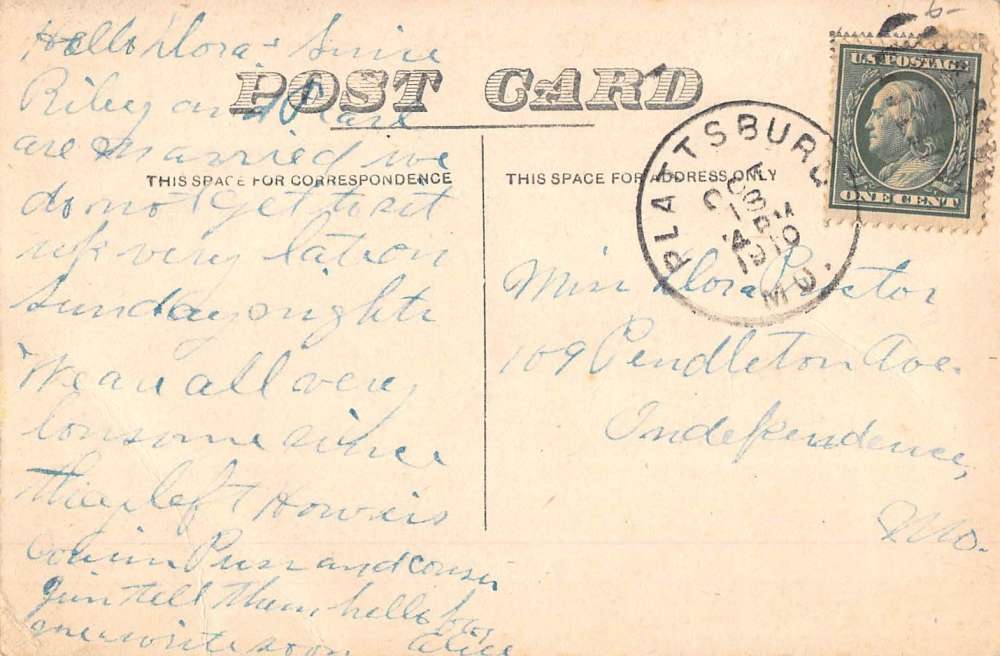 Hello Dora + Since
POST CARD
Riley and Pearl
are married we
THIS SPACE FOR CORRESPONDENCE
THIS SPACE FOR ADDRESS ONLY
do not get to sit
up very late on
Sunday nights
We are all very
lonsome since
they left How is
Cousin Puss and cousin
Jim tell them hello for
me write soon Alice
U.S. POSTAGE
ONE CENT
PLATTSBURG
OCT
13
4 PM
1910
MO.
Miss Dora
109 Pendleton Ave.
Independence,
Mo.